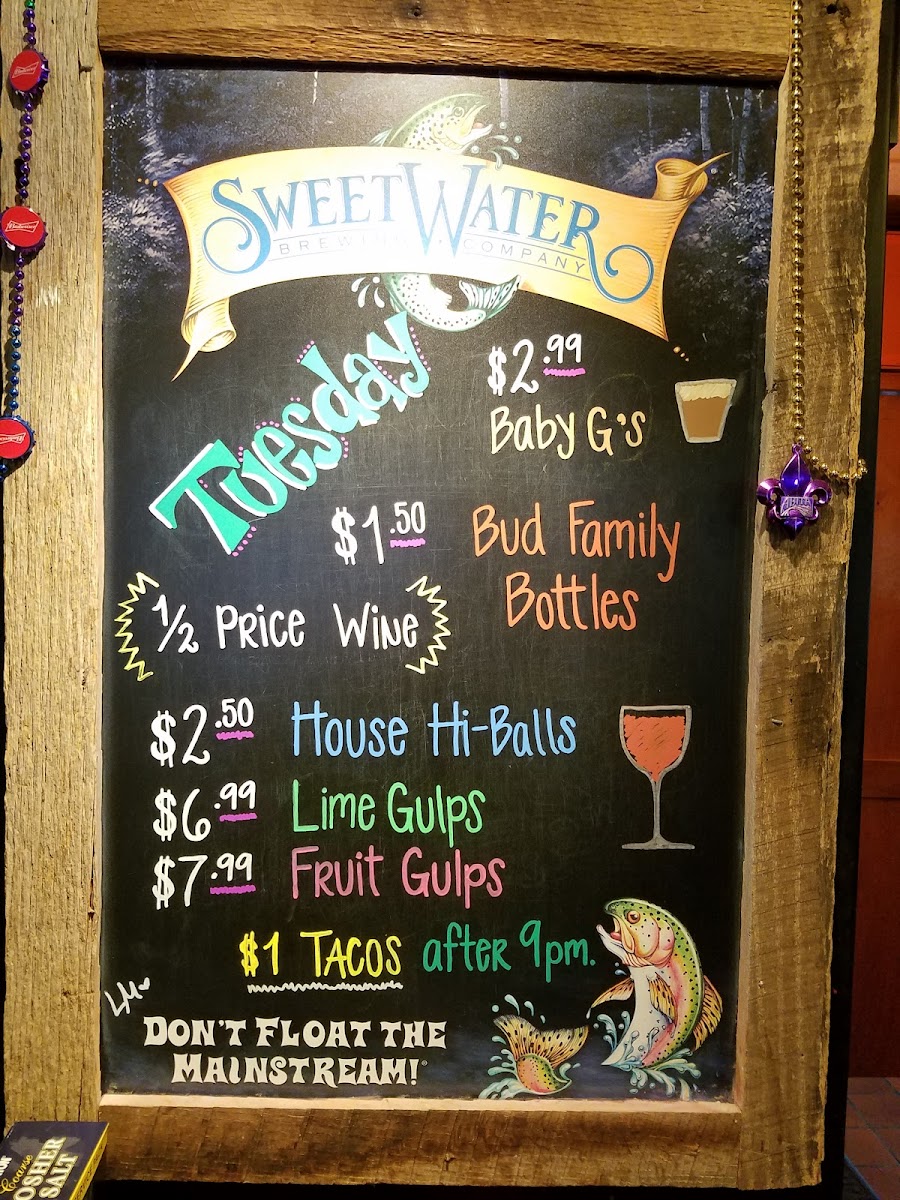 SWEETWATER
BREWING COMPANY
Tuesday
$2.99
Baby G's
$1.50 Bud Family
Bottles
1/2 Price Wine
$2.50 House Hi-Balls
$6.99 Lime Gulps
$7.99 Fruit Gulps
$1 Tacos after 9pm.
LM
DON'T FLOAT THE
MAINSTREAM!®
Budweiser
Budweiser
Budweiser
Coarse
OSHER
SALT